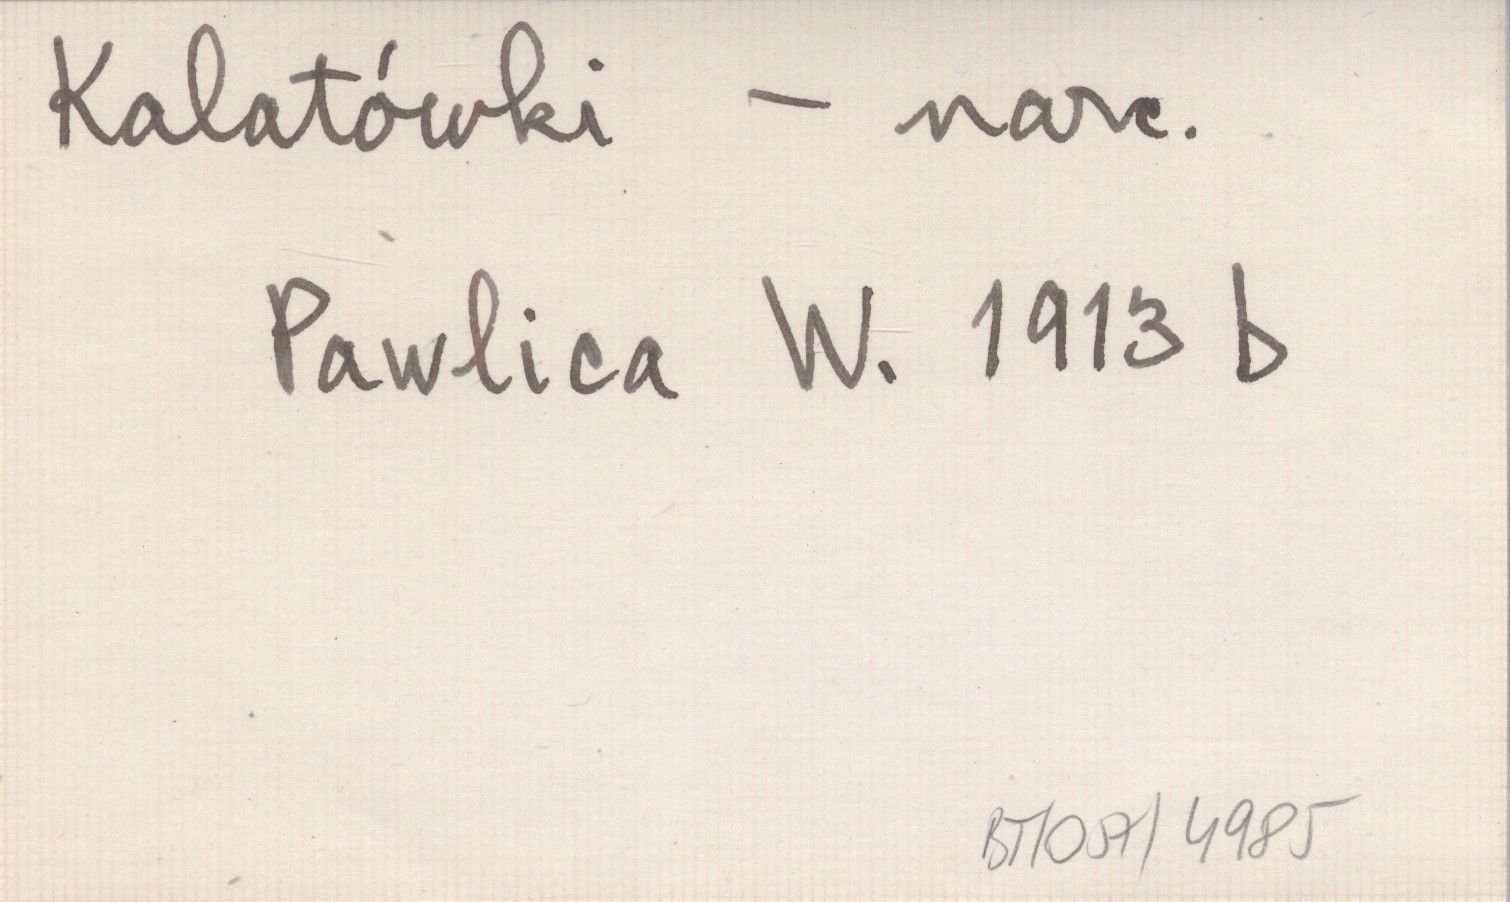 Kalatówki – narc.
Pawlica W. 1913 b
BT/057/4985